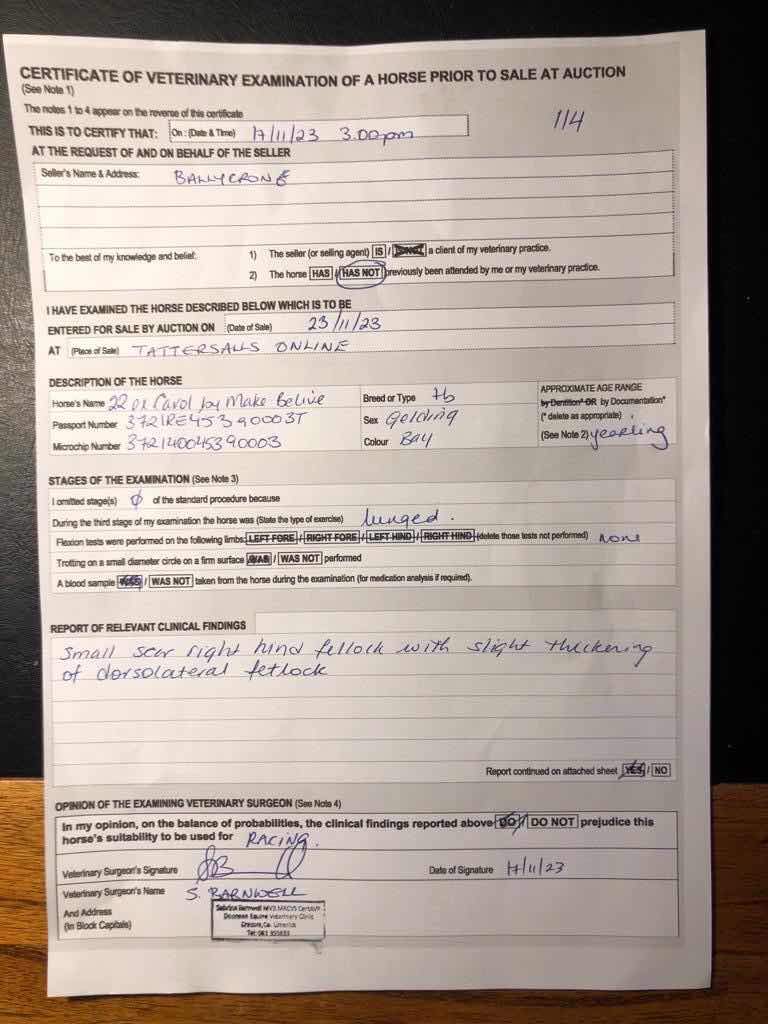 CERTIFICATE OF VETERINARY EXAMINATION OF A HORSE PRIOR TO SALE AT AUCTION
(See Note 1)
The notes 1 to 4 appear on the reverse of this certificate
114
THIS IS TO CERTIFY THAT: On : (Date & Time) 17/11/23 3.00pm
AT THE REQUEST OF AND ON BEHALF OF THE SELLER
Seller's Name & Address: BALLYCRONE
To the best of my knowledge and belief: 1) The seller (or selling agent) IS / IS NOT a client of my veterinary practice.
2) The horse HAS / HAS NOT previously been attended by me or my veterinary practice.
I HAVE EXAMINED THE HORSE DESCRIBED BELOW WHICH IS TO BE
ENTERED FOR SALE BY AUCTION ON (Date of Sale) 23/11/23
AT (Place of Sale) TATTERSALLS ONLINE
DESCRIPTION OF THE HORSE
Horse's Name 22 ex Carol by Make Belive
Passport Number 372IRE45390003T
Microchip Number 372140045390003
Breed or Type tb
Sex Gelding
Colour Bay
APPROXIMATE AGE RANGE
by Dentition* OR by Documentation*
(* delete as appropriate)
(See Note 2) yearling
STAGES OF THE EXAMINATION (See Note 3)
I omitted stage(s) Ø of the standard procedure because
During the third stage of my examination the horse was (State the type of exercise) lunged.
Flexion tests were performed on the following limbs: LEFT FORE / RIGHT FORE / LEFT HIND / RIGHT HIND (delete those tests not performed) none
Trotting on a small diameter circle on a firm surface WAS / WAS NOT performed
A blood sample WAS / WAS NOT taken from the horse during the examination (for medication analysis if required).
REPORT OF RELEVANT CLINICAL FINDINGS
small scar right hind fetlock with slight thickening
of dorsolateral fetlock
Report continued on attached sheet YES / NO
OPINION OF THE EXAMINING VETERINARY SURGEON (See Note 4)
In my opinion, on the balance of probabilities, the clinical findings reported above DO / DO NOT prejudice this
horse's suitability to be used for RACING.
Veterinary Surgeon's Signature
Date of Signature 17/11/23
Veterinary Surgeon's Name S. BARNWELL
And Address
(In Block Capitals)
Sabrina Barnwell MVB MACVS CertAVP
Dooneen Equine Veterinary Clinic
Co. Limerick